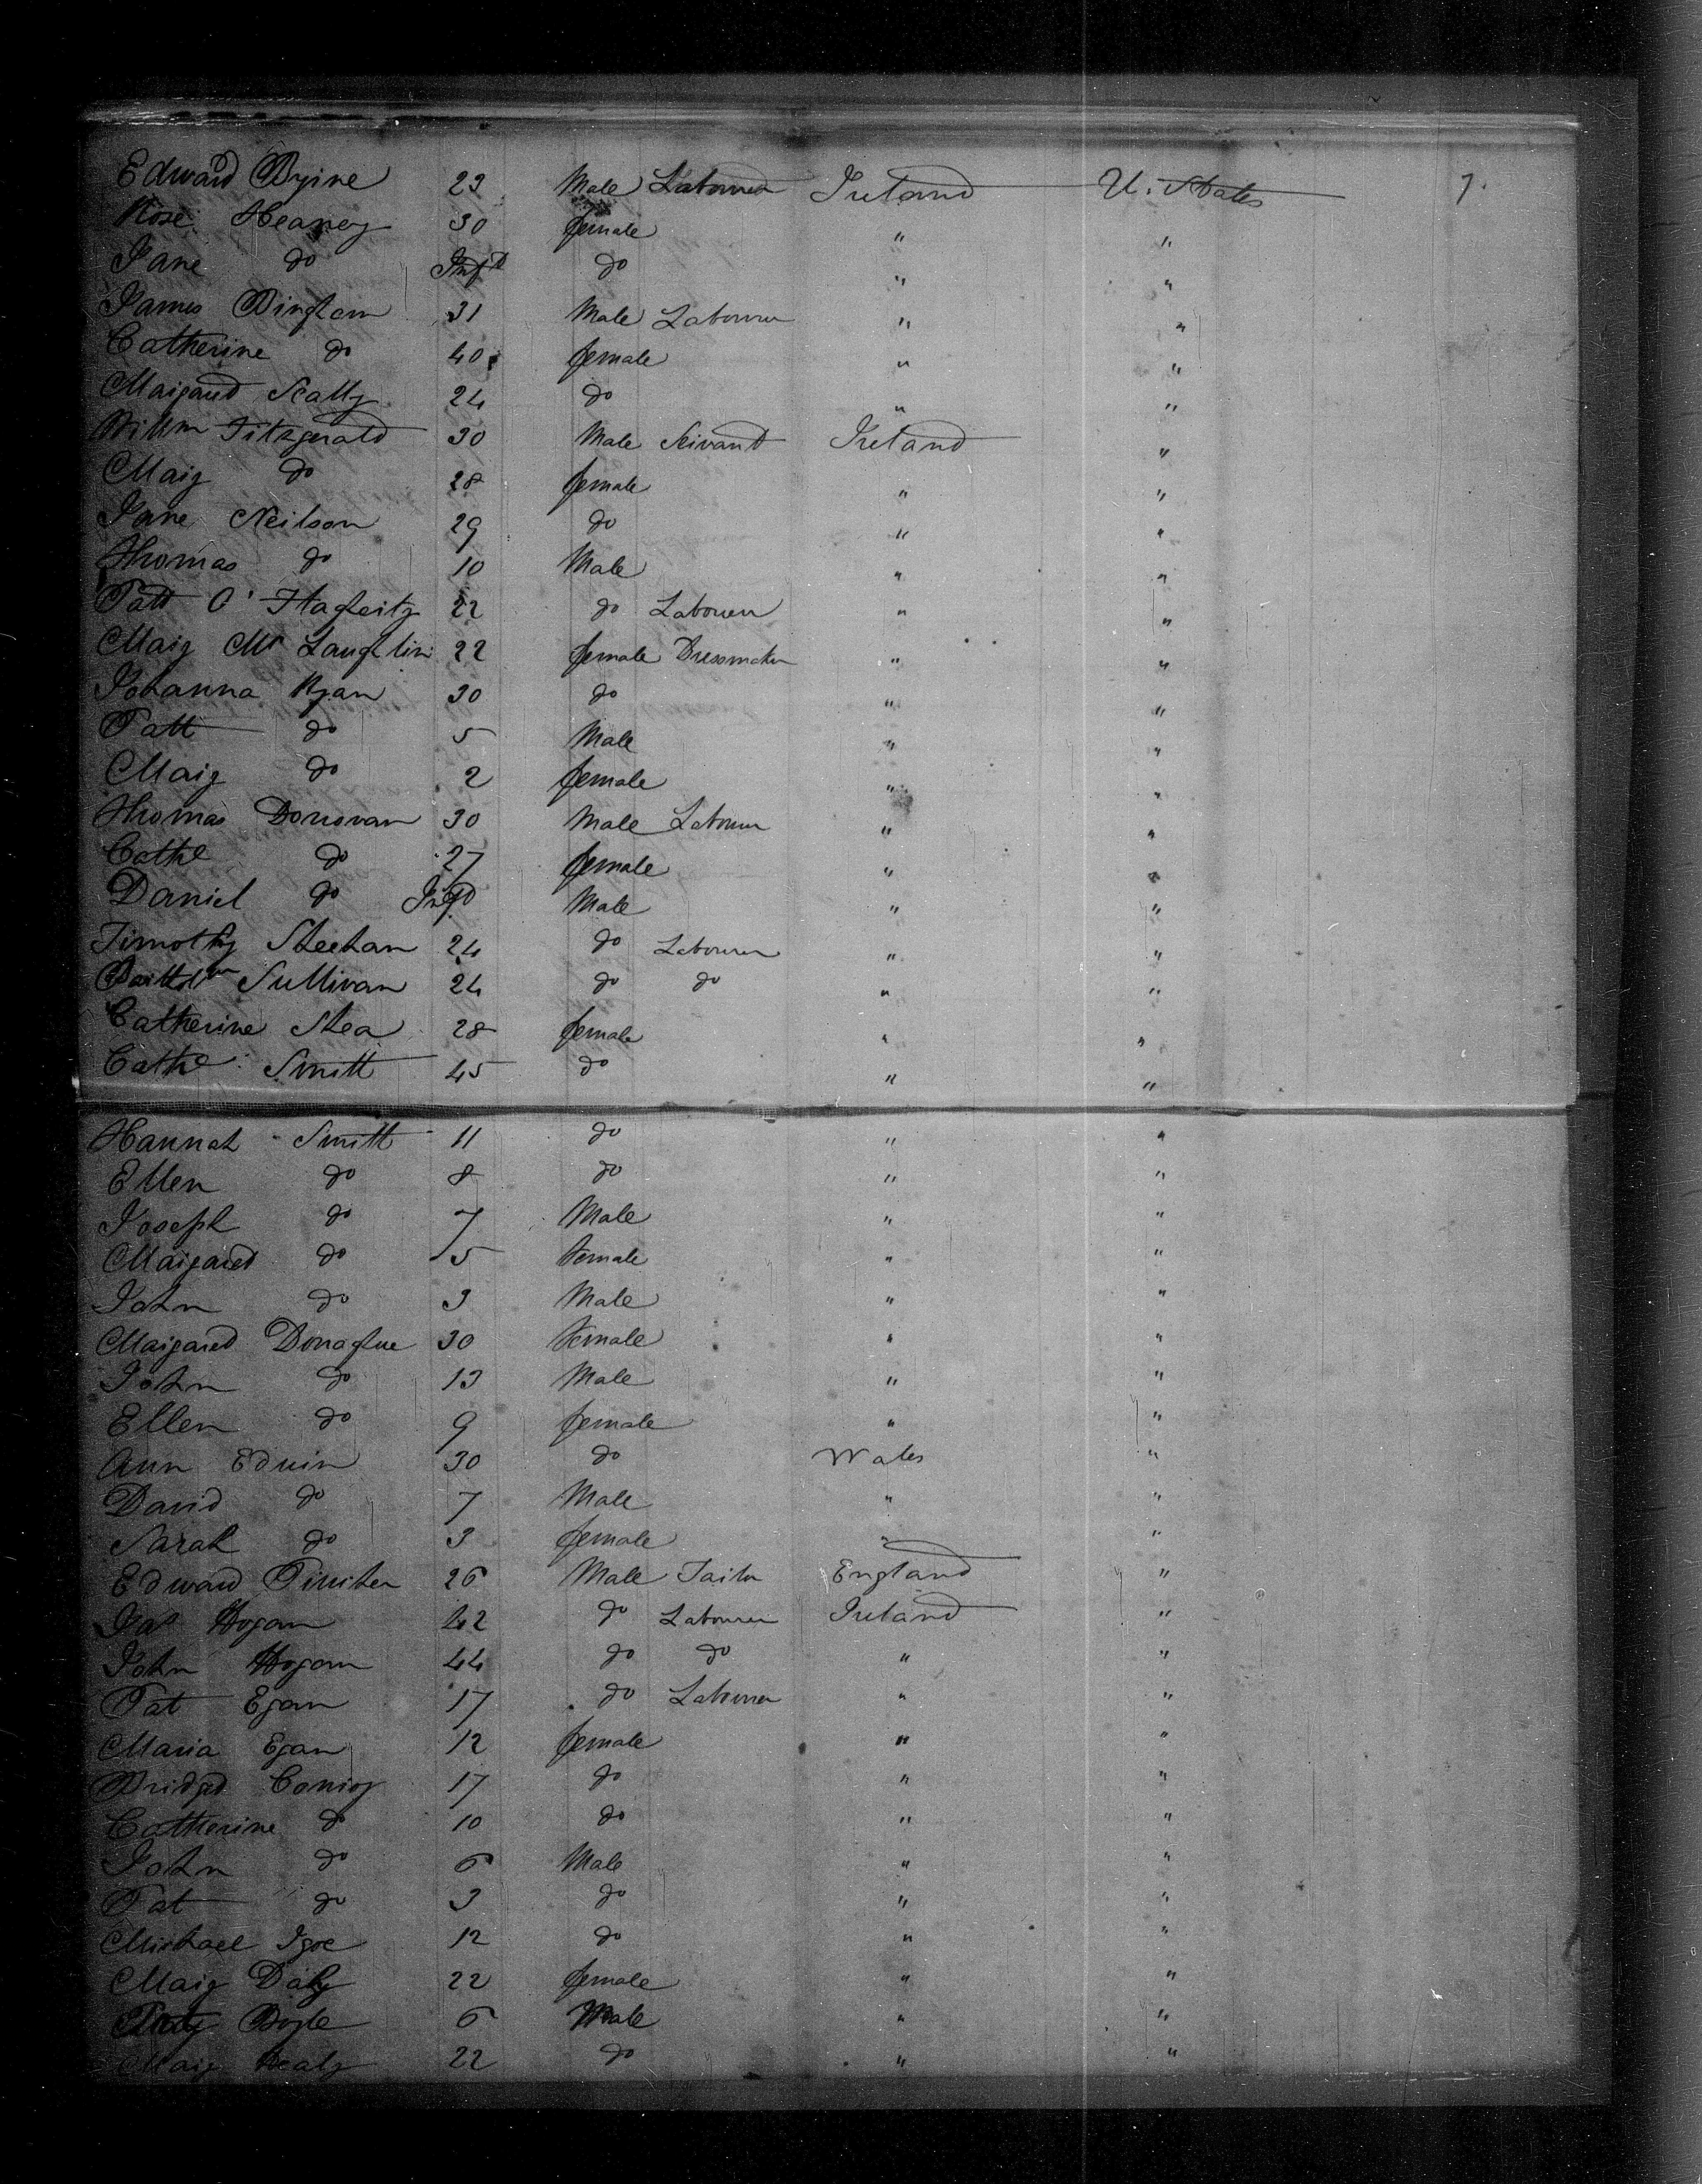 Edward Byrne 23 Male Labourer Ireland U. States 7.
Rose Heaney 30 female " "
Jane do Inft do " "
James Bingham 31 Male Labourer " "
Catherine do 40 female " "
Margaret Scally 24 do " "
Willm Fitzgerald 30 Male Servant Ireland "
Marg do 28 female " "
Jane Neilson 29 do " "
Thomas do 10 Male " "
Patt O'Flaherty 22 do Labourer " "
Marg Mc Laughlin 22 female Dressmaker " "
Johanna Ryan 30 do " "
Patt do 5 Male " "
Marg do 2 female " "
Thomas Donovan 30 Male Labourer " "
Cathe do 27 female " "
Daniel do Inft Male " "
Timothy Sheehan 24 do Labourer " "
Bartholw Sullivan 24 do do " "
Catherine Shea 28 female " "
Cathe Smith 45 do " "
Hannah Smith 11 do " "
Ellen do 8 do " "
Joseph do 7 Male " "
Margaret do 5 female " "
John do 3 Male " "
Margaret Donaghue 30 female " "
John do 13 Male " "
Ellen do 9 female " "
Ann Edwin 30 do Wales "
David do 7 Male " "
Sarah do 3 female " "
Edward 26 Male Tailor England "
Jas Hogan 42 do Labourer Ireland "
John Hogan 44 do do " "
Pat Egan 17 do Labourer " "
Maria Egan 12 female " "
Bridget Conroy 17 do " "
Catherine do 10 do " "
John do 6 Male " "
Pat do 3 do " "
Michael Igoe 12 do " "
Marg Daly 22 female " "
Boyle 6 Male " "
Marg Healy 22 do " "